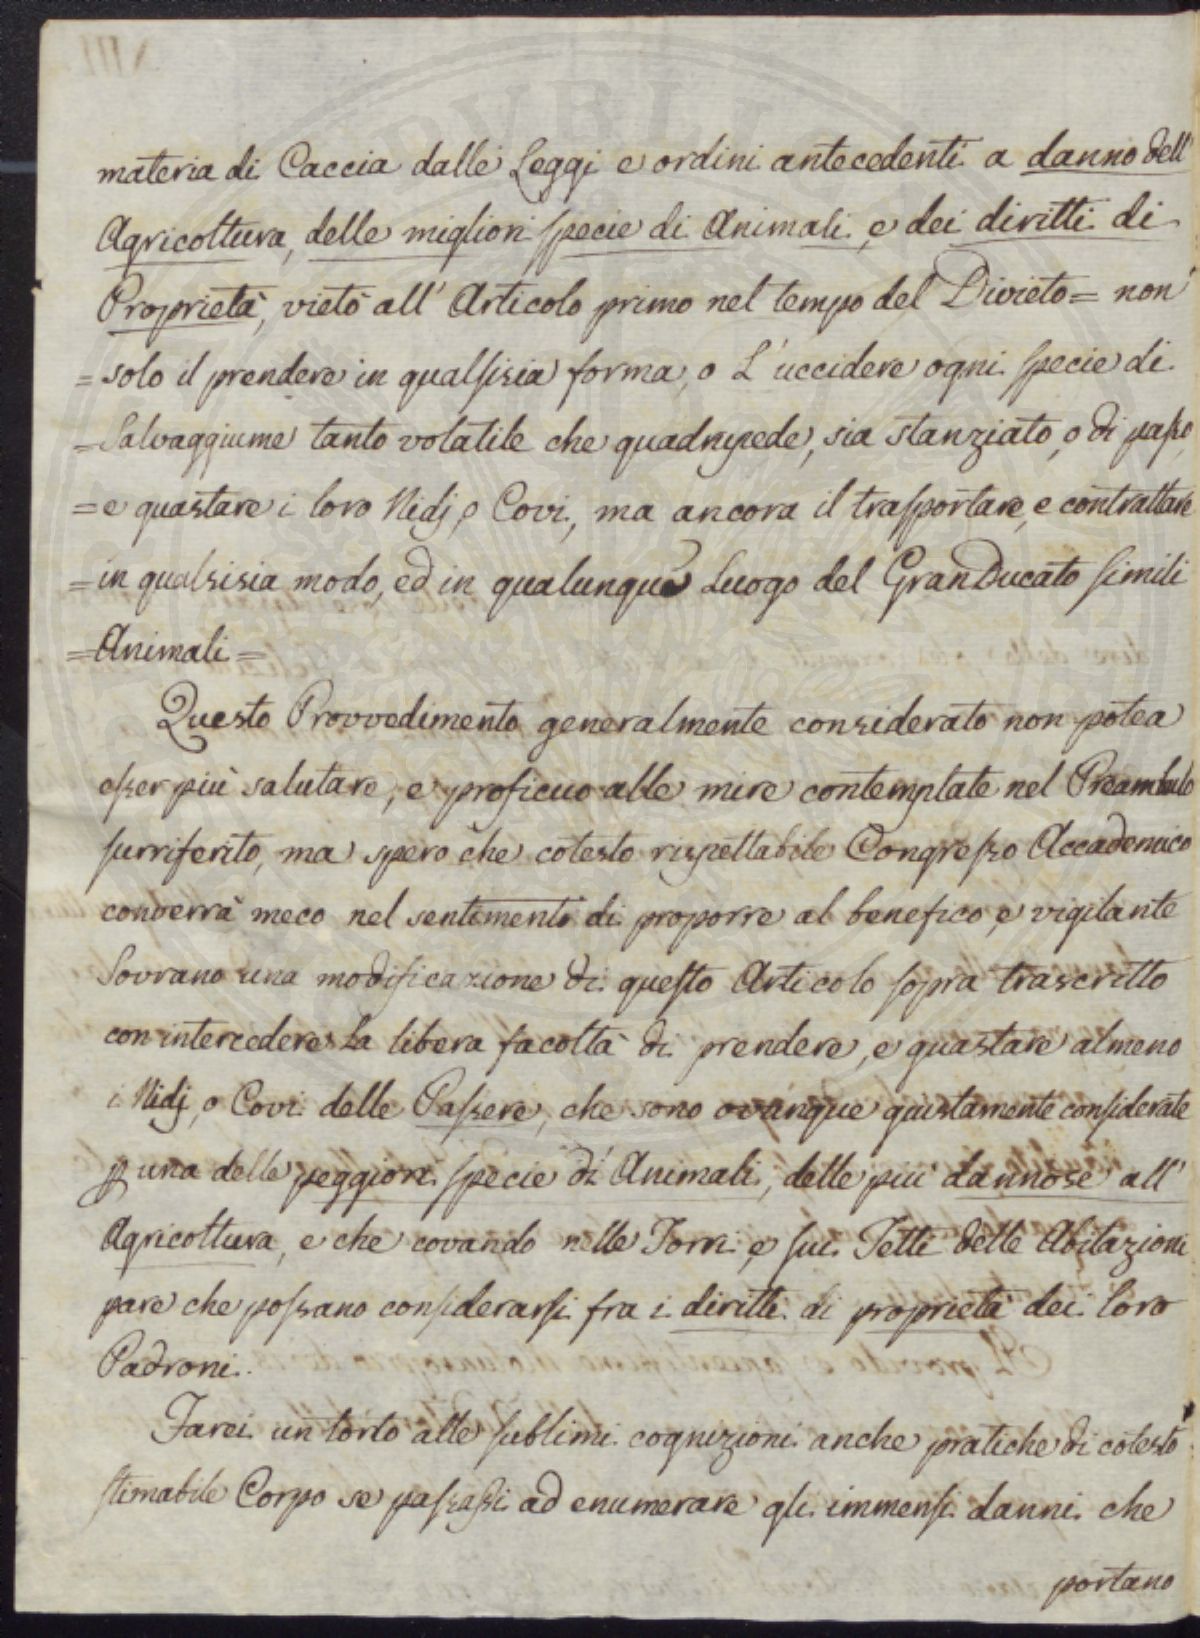 materia di Caccia dalle Leggi e ordini antecedenti a danno dell'
Agricoltura, delle migliori specie di Animali, e dei diritti di
Proprietà, vietò all' Articolo primo nel tempo del Divieto = non
= solo il prendere in qualsisia forma, o L'uccidere ogni specie di
= Salvaggiume tanto volatile che quadrupede, sia stanziato, o di passo,
= e guastare i loro Nidj, o Covi, ma ancora il trasportare, e contrattare
= in qualsisia modo, ed in qualunque Luogo del GranDucato simili
= Animali =
Questo Provvedimento generalmente considerato non potea
esser più salutare, e proficuo alle mire contemplate nel Preambulo
surriferito, ma spero che cotesto rispettabile Congresso Accademico
converrà meco nel sentimento di proporre al benefico, e vigilante
Sovrano una modificazione di questo Articolo sopra trascritto
con intercedere La libera facoltà di prendere, e guastare almeno
i Nidj, o Covi delle Passere, che sono ovunque giustamente considerate
p una delle peggiori specie di Animali, delle più dannose all'
Agricoltura, e che covando nelle Torri, e sui Tetti delle Abitazioni
pare che possano considerarsi fra i diritti di proprietà dei loro
Padroni.
Farei un torto alle sublimi cognizioni anche pratiche di cotesto
stimabile Corpo se passassi ad enumerare gli immensi danni che
portano